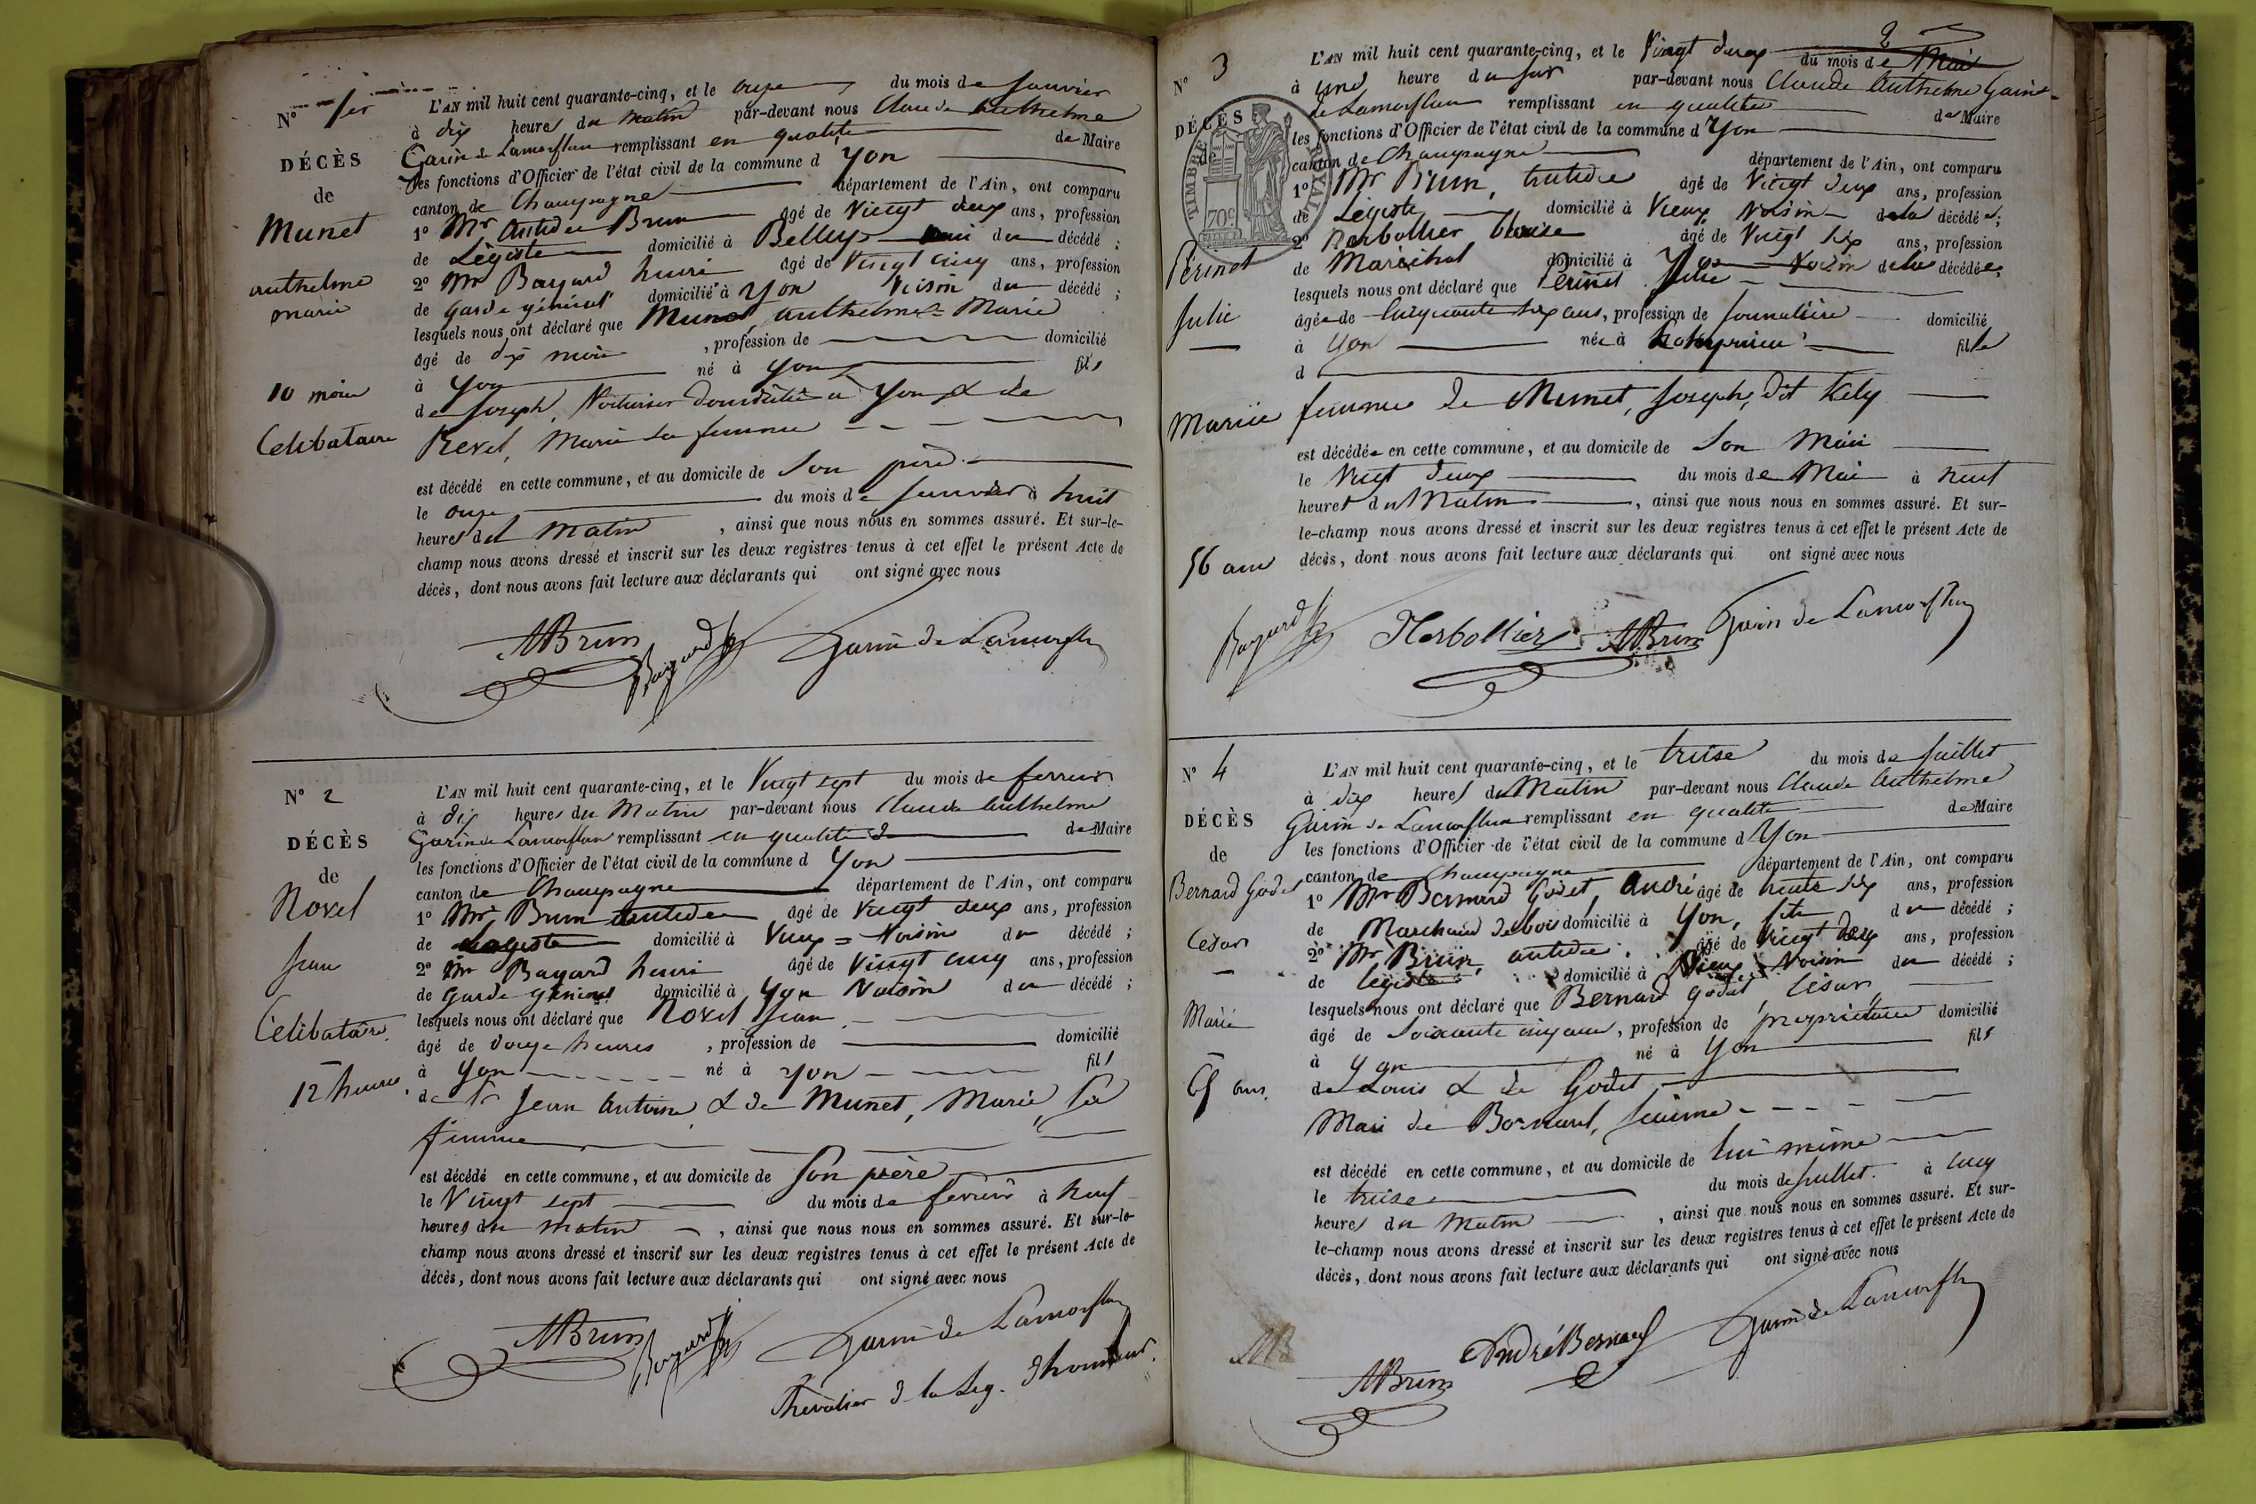 N° 1er
DÉCÈS
de
Munet
anthelme
marie
10 mois
Célibataire
L'AN mil huit cent quarante-cinq, et le onze du mois de Janvier
à dix heures du matin par-devant nous Claude anthelme
Garin de Lamorflan remplissant en qualité de Maire
les fonctions d'Officier de l'état civil de la commune d Yon
canton de Champagne département de l'Ain, ont comparu
1° Mr antide Brun âgé de Vingt deux ans, profession
de Légiste domicilié à Belley ami du décédé ;
2° Mr Bayard henri âgé de Vingt cinq ans, profession
de garde général domicilié à Yon Voisin du décédé ;
lesquels nous ont déclaré que Munet, anthelme Marie
âgé de dix mois , profession de domicilié
à Yon né à Yon fils
de Joseph, Voiturier domicilié à Yon & de
Revel, Marie sa femme
est décédé en cette commune, et au domicile de Son père
le onze du mois de Janvier à huit
heures du Matin , ainsi que nous nous en sommes assuré. Et sur-le-
champ nous avons dressé et inscrit sur les deux registres tenus à cet effet le présent Acte de
décès, dont nous avons fait lecture aux déclarants qui ont signé avec nous
ABrun Bayard Garin de Lamorflan
N° 2
DÉCÈS
de
Novel
Jean
Célibataire
12 heures
L'AN mil huit cent quarante-cinq, et le Vingt sept du mois de ferrier
à dix heures du Matin par-devant nous Claude anthelme
Garin de Lamorflan remplissant en qualité d de Maire
les fonctions d'Officier de l'état civil de la commune d Yon
canton de Champagne département de l'Ain, ont comparu
1° Mr Brun antide âgé de Vingt deux ans, profession
de Légiste domicilié à Vieux = Voisin du décédé ;
2° Mr Bayard henri âgé de Vingt cinq ans, profession
de garde général domicilié à Yon Voisin du décédé ;
lesquels nous ont déclaré que Novel Jean
âgé de douze heures , profession de domicilié
à Yon né à Yon fils
de Jean Antoine & de Munet, Marie, Sa
femme
est décédé en cette commune, et au domicile de Son père
le Vingt sept du mois de fevrier à neuf
heures du matin , ainsi que nous nous en sommes assuré. Et sur-le-
champ nous avons dressé et inscrit sur les deux registres tenus à cet effet le présent Acte de
décès, dont nous avons fait lecture aux déclarants qui ont signé avec nous
ABrun Bayard Garin de Lamorflan
Chevalier d la Leg. d'honneur.
N° 3
DÉCÈS
de
TIMBRE ROYAL
70c
Périnet
Julie
Mariée
56 ans
L'AN mil huit cent quarante-cinq, et le Vingt deux du mois de Mai
à une heure du soir par-devant nous Claude Anthelme Garin
de Lamorflan remplissant en qualité de Maire
les fonctions d'Officier de l'état civil de la commune d Yon
canton de Champagne département de l'Ain, ont comparu
1° Mr Brun, antide âgé de Vingt deux ans, profession
de Légiste domicilié à Vieux Voisin de la décédée ;
2° Herbollier blaise âgé de Vingt six ans, profession
de Maréchal domicilié à Yon Voisin de la décédée
lesquels nous ont déclaré que Perinet Julie
âgée de Cinquante six ans, profession de Journalière domicilié
à Yon née à fille
d
femme de Munet, Joseph, dit
est décédée en cette commune, et au domicile de Son Mari
le Vingt deux du mois de Mai à neuf
heures du Matin , ainsi que nous nous en sommes assuré. Et sur-
le-champ nous avons dressé et inscrit sur les deux registres tenus à cet effet le présent Acte de
décès, dont nous avons fait lecture aux déclarants qui ont signé avec nous
Bayard Herbollier ABrun Garin de Lamorflan
N° 4
DÉCÈS
de
Bernard Godet
César
Marié
65 ans
L'AN mil huit cent quarante-cinq, et le treise du mois de Juillet
à dix heures du Matin par-devant nous Claude Anthelme
Garin de Lamorflan remplissant en qualité de Maire
les fonctions d'Officier de l'état civil de la commune d Yon
canton de Champagne département de l'Ain, ont comparu
1° Mr Bernard Godet, André âgé de trente six ans, profession
de Marchand de bois domicilié à Yon, fils du décédé ;
2° Mr Brun, antide âgé de Vingt deux ans, profession
de légiste domicilié à Vieux Voisin du décédé ;
lesquels nous ont déclaré que Bernard godet, César,
âgé de Soixante cinq ans, profession de propriétaire domicilié
à Yon né à Yon fils
de Louis & de Godet
Mari de Bornard,
est décédé en cette commune, et au domicile de lui même
le treise du mois de Juillet à cinq
heures du Matin , ainsi que nous nous en sommes assuré. Et sur-
le-champ nous avons dressé et inscrit sur les deux registres tenus à cet effet le présent Acte de
décès, dont nous avons fait lecture aux déclarants qui ont signé avec nous
ABrun André Bernard Garin de Lamorflan